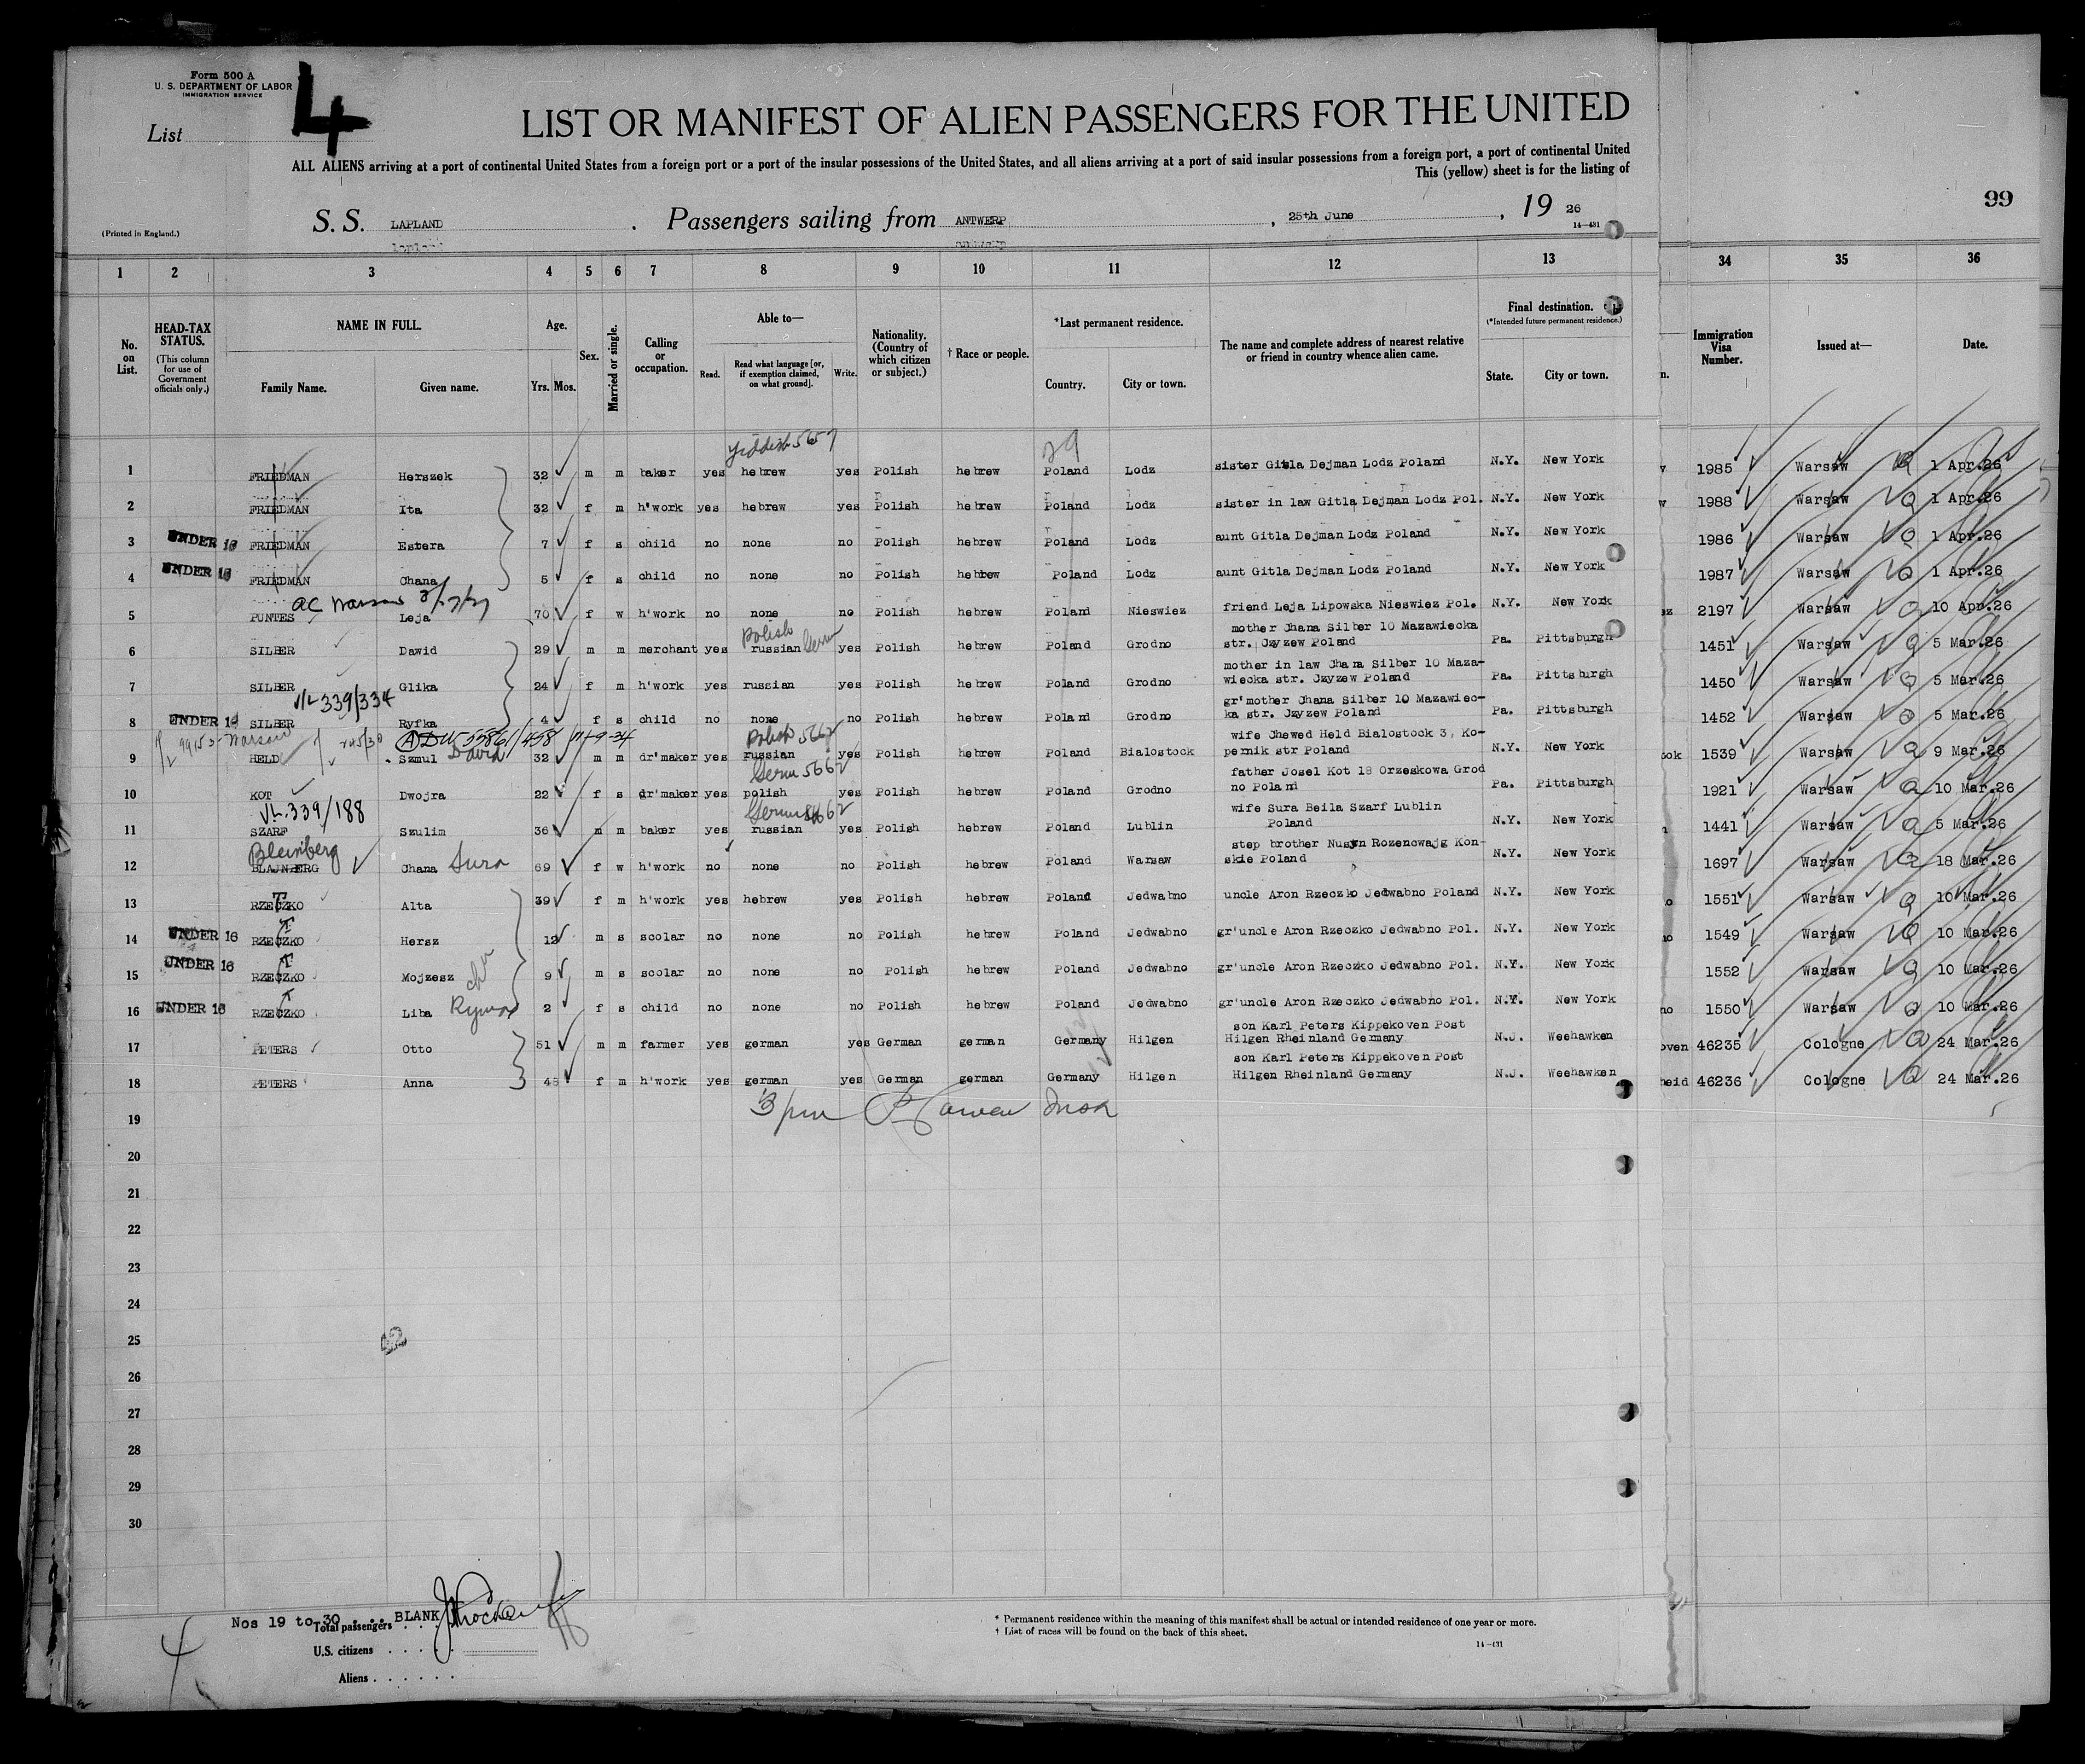 Form 500 A
U. S. DEPARTMENT OF LABOR
IMMIGRATION SERVICE
List 4
LIST OR MANIFEST OF ALIEN PASSENGERS FOR THE UNITED
ALL ALIENS arriving at a port of continental United States from a foreign port or a port of the insular possessions of the United States, and all aliens arriving at a port of said insular possessions from a foreign port, a port of continental United
This (yellow) sheet is for the listing of
99
(Printed in England.)
S. S. LAPLAND . Passengers sailing from ANTWERP , 25th June , 19 26
14—431
1 2 3 4 5 6 7 8 9 10 11 12 13 34 35 36
No. on List.
HEAD-TAX STATUS.
(This column for use of Government officials only.)
NAME IN FULL.
Family Name. Given name.
Age.
Yrs. Mos.
Sex.
Married or single.
Calling or occupation.
Able to—
Read. Read what language [or, if exemption claimed, on what ground]. Write.
Nationality. (Country of which citizen or subject.)
† Race or people.
*Last permanent residence.
Country. City or town.
The name and complete address of nearest relative or friend in country whence alien came.
Final destination.
(*Intended future permanent residence.)
State. City or town.
Immigration Visa Number.
Issued at—
Date.
Yiddish 5657 29
1 FRIEDMAN Herszek 32 m m baker yes hebrew yes Polish hebrew Poland Lodz sister Gitla Dejman Lodz Poland N.Y. New York 1985 Warsaw 1 Apr.26
2 FRIEDMAN Ita 32 f m h'work yes hebrew yes Polish hebrew Poland Lodz sister in law Gitla Dejman Lodz Pol. N.Y. New York 1988 Warsaw 1 Apr.26
3 UNDER 16 FRIEDMAN Estera 7 f s child no none no Polish hebrew Poland Lodz aunt Gitla Dejman Lodz Poland N.Y. New York 1986 Warsaw 1 Apr.26
4 UNDER 16 FRIEDMAN Chana 5 f s child no none no Polish hebrew Poland Lodz aunt Gitla Dejman Lodz Poland N.Y. New York 1987 Warsaw 1 Apr.26
ac Warsaw
5 PUNTES Leja 70 f w h'work no none no Polish hebrew Poland Nieswiez friend Leja Lipowska Nieswiez Pol. N.Y. New York 2197 Warsaw 10 Apr.26
polish Germ
6 SILBER Dawid 29 m m merchant yes russian yes Polish hebrew Poland Grodno mother Chana Silber 10 Mazawiecka str. Czyzew Poland Pa. Pittsburgh 1451 Warsaw 5 Mar.26
7 SILBER Glika 24 f m h'work yes russian yes Polish hebrew Poland Grodno mother in law Chana Silber 10 Mazawiecka str. Czyzew Poland Pa. Pittsburgh 1450 Warsaw 5 Mar.26
V/L 339/334
8 UNDER 16 SILBER Ryfka 4 f s child no none no Polish hebrew Poland Grodno gr'mother Chana Silber 10 Mazawiecka str. Czyzew Poland Pa. Pittsburgh 1452 Warsaw 5 Mar.26
Warsaw polish 5662
9 HELD Szmul David 32 m m dr'maker yes russian yes Polish hebrew Poland Bialostock wife Chewed Held Bialostock 3, Kopernik str Poland N.Y. New York 1539 Warsaw 9 Mar.26
Germ 5662
10 KOT Dwojra 22 f s dr'maker yes polish yes Polish hebrew Poland Grodno father Josel Kot 18 Orzeskowa Grodno Poland Pa. Pittsburgh 1921 Warsaw 10 Mar.26
V.L.339/188
11 SZARF Szulim 36 m m baker yes russian yes Polish hebrew Poland Lublin wife Sura Beila Szarf Lublin Poland N.Y. New York 1441 Warsaw 5 Mar.26
Bleinberg
12 BLAJNBERG Chana Sura 69 f w h'work no none no Polish hebrew Poland Warsaw step brother Nusyn Rozenowajg Konskie Poland N.Y. New York 1697 Warsaw 18 Mar.26
13 RZECZKO Alta 39 f m h'work yes hebrew yes Polish hebrew Poland Jedwabno uncle Aron Rzeczko Jedwabno Poland N.Y. New York 1551 Warsaw 10 Mar.26
14 UNDER 16 RZECZKO Hersz 12 m s scolar no none no Polish hebrew Poland Jedwabno gr'uncle Aron Rzeczko Jedwabno Pol. N.Y. New York 1549 Warsaw 10 Mar.26
15 UNDER 16 RZECZKO Mojzesz 9 m s scolar no none no Polish hebrew Poland Jedwabno gr'uncle Aron Rzeczko Jedwabno Pol. N.Y. New York 1552 Warsaw 10 Mar.26
16 UNDER 16 RZECZKO Liba 2 f s child no none no Polish hebrew Poland Jedwabno gr'uncle Aron Rzeczko Jedwabno Pol. N.Y. New York 1550 Warsaw 10 Mar.26
17 PETERS Otto 51 m m farmer yes german yes German german Germany Hilgen son Karl Peters Kippekoven Post Hilgen Rheinland Germany N.J. Weehawken 46235 Cologne 24 Mar.26
18 PETERS Anna f m h'work yes german yes German german Germany Hilgen son Karl Peters Kippekoven Post Hilgen Rheinland Germany N.J. Weehawken 46236 Cologne 24 Mar.26
19 3 pm
20
21
22
23
24
25
26
27
28
29
30
Nos 19 to 30 .... BLANK
Total passengers
U.S. citizens
Aliens
4
* Permanent residence within the meaning of this manifest shall be actual or intended residence of one year or more.
† List of races will be found on the back of this sheet.
14—431